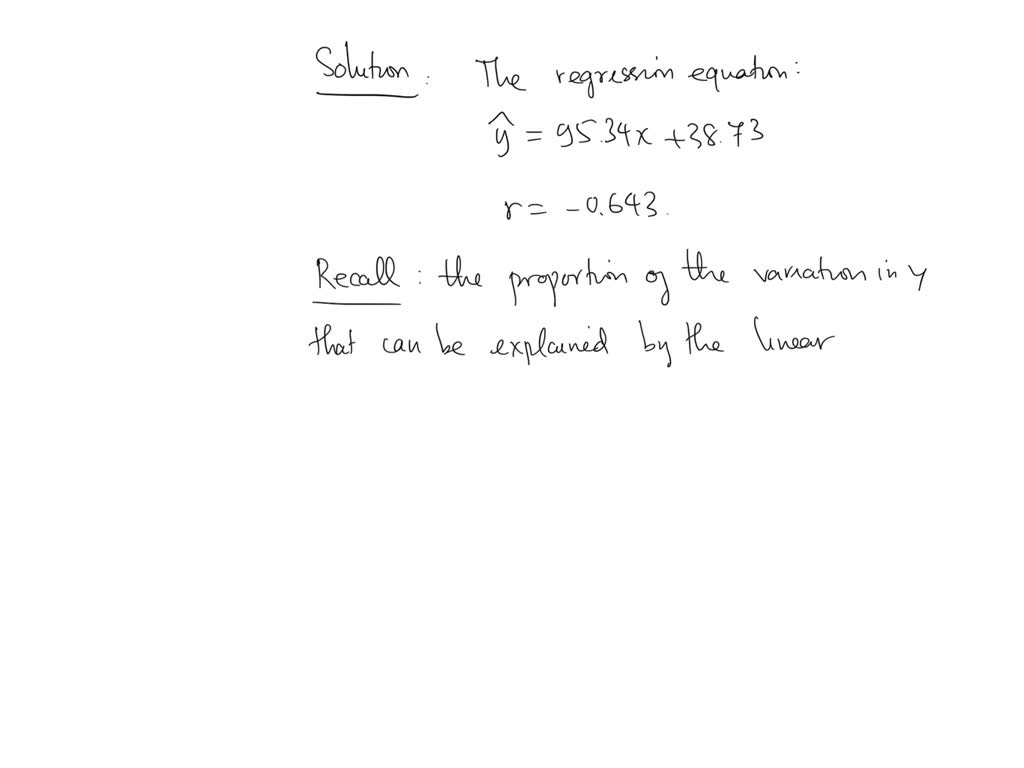 Solution : The regression equation:
ŷ = 95.34x + 38.73
r = -0.643.
Recall : the proportion of the variation in y
that can be explained by the linear